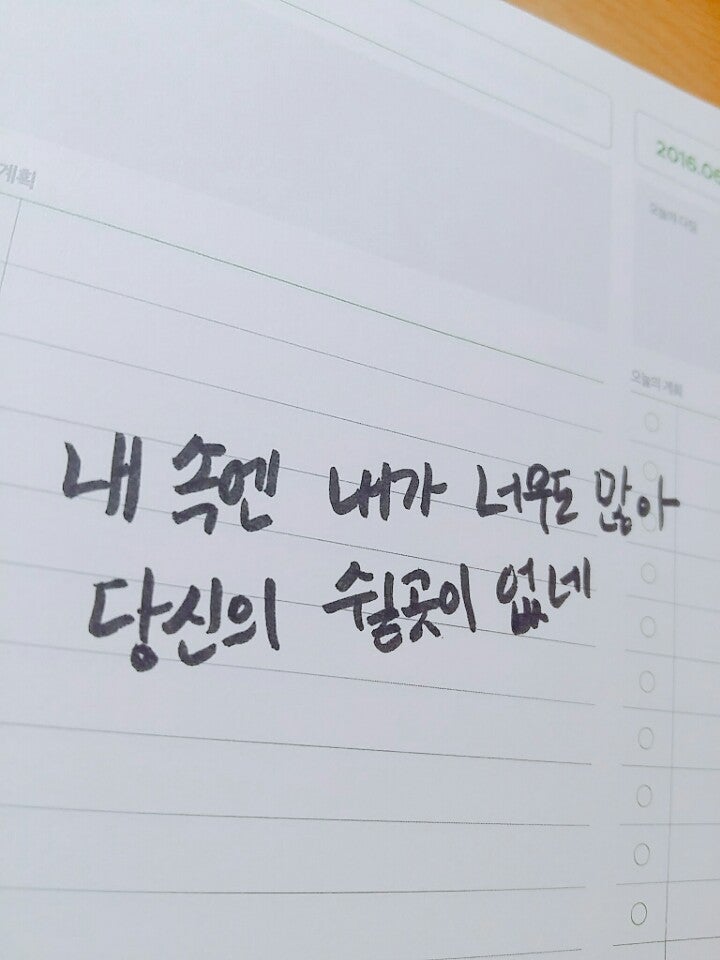 2016.06
오늘의 다짐
계획
오늘의 계획
내 속엔 내가 너무도 많아
당신의 쉴곳이 없네